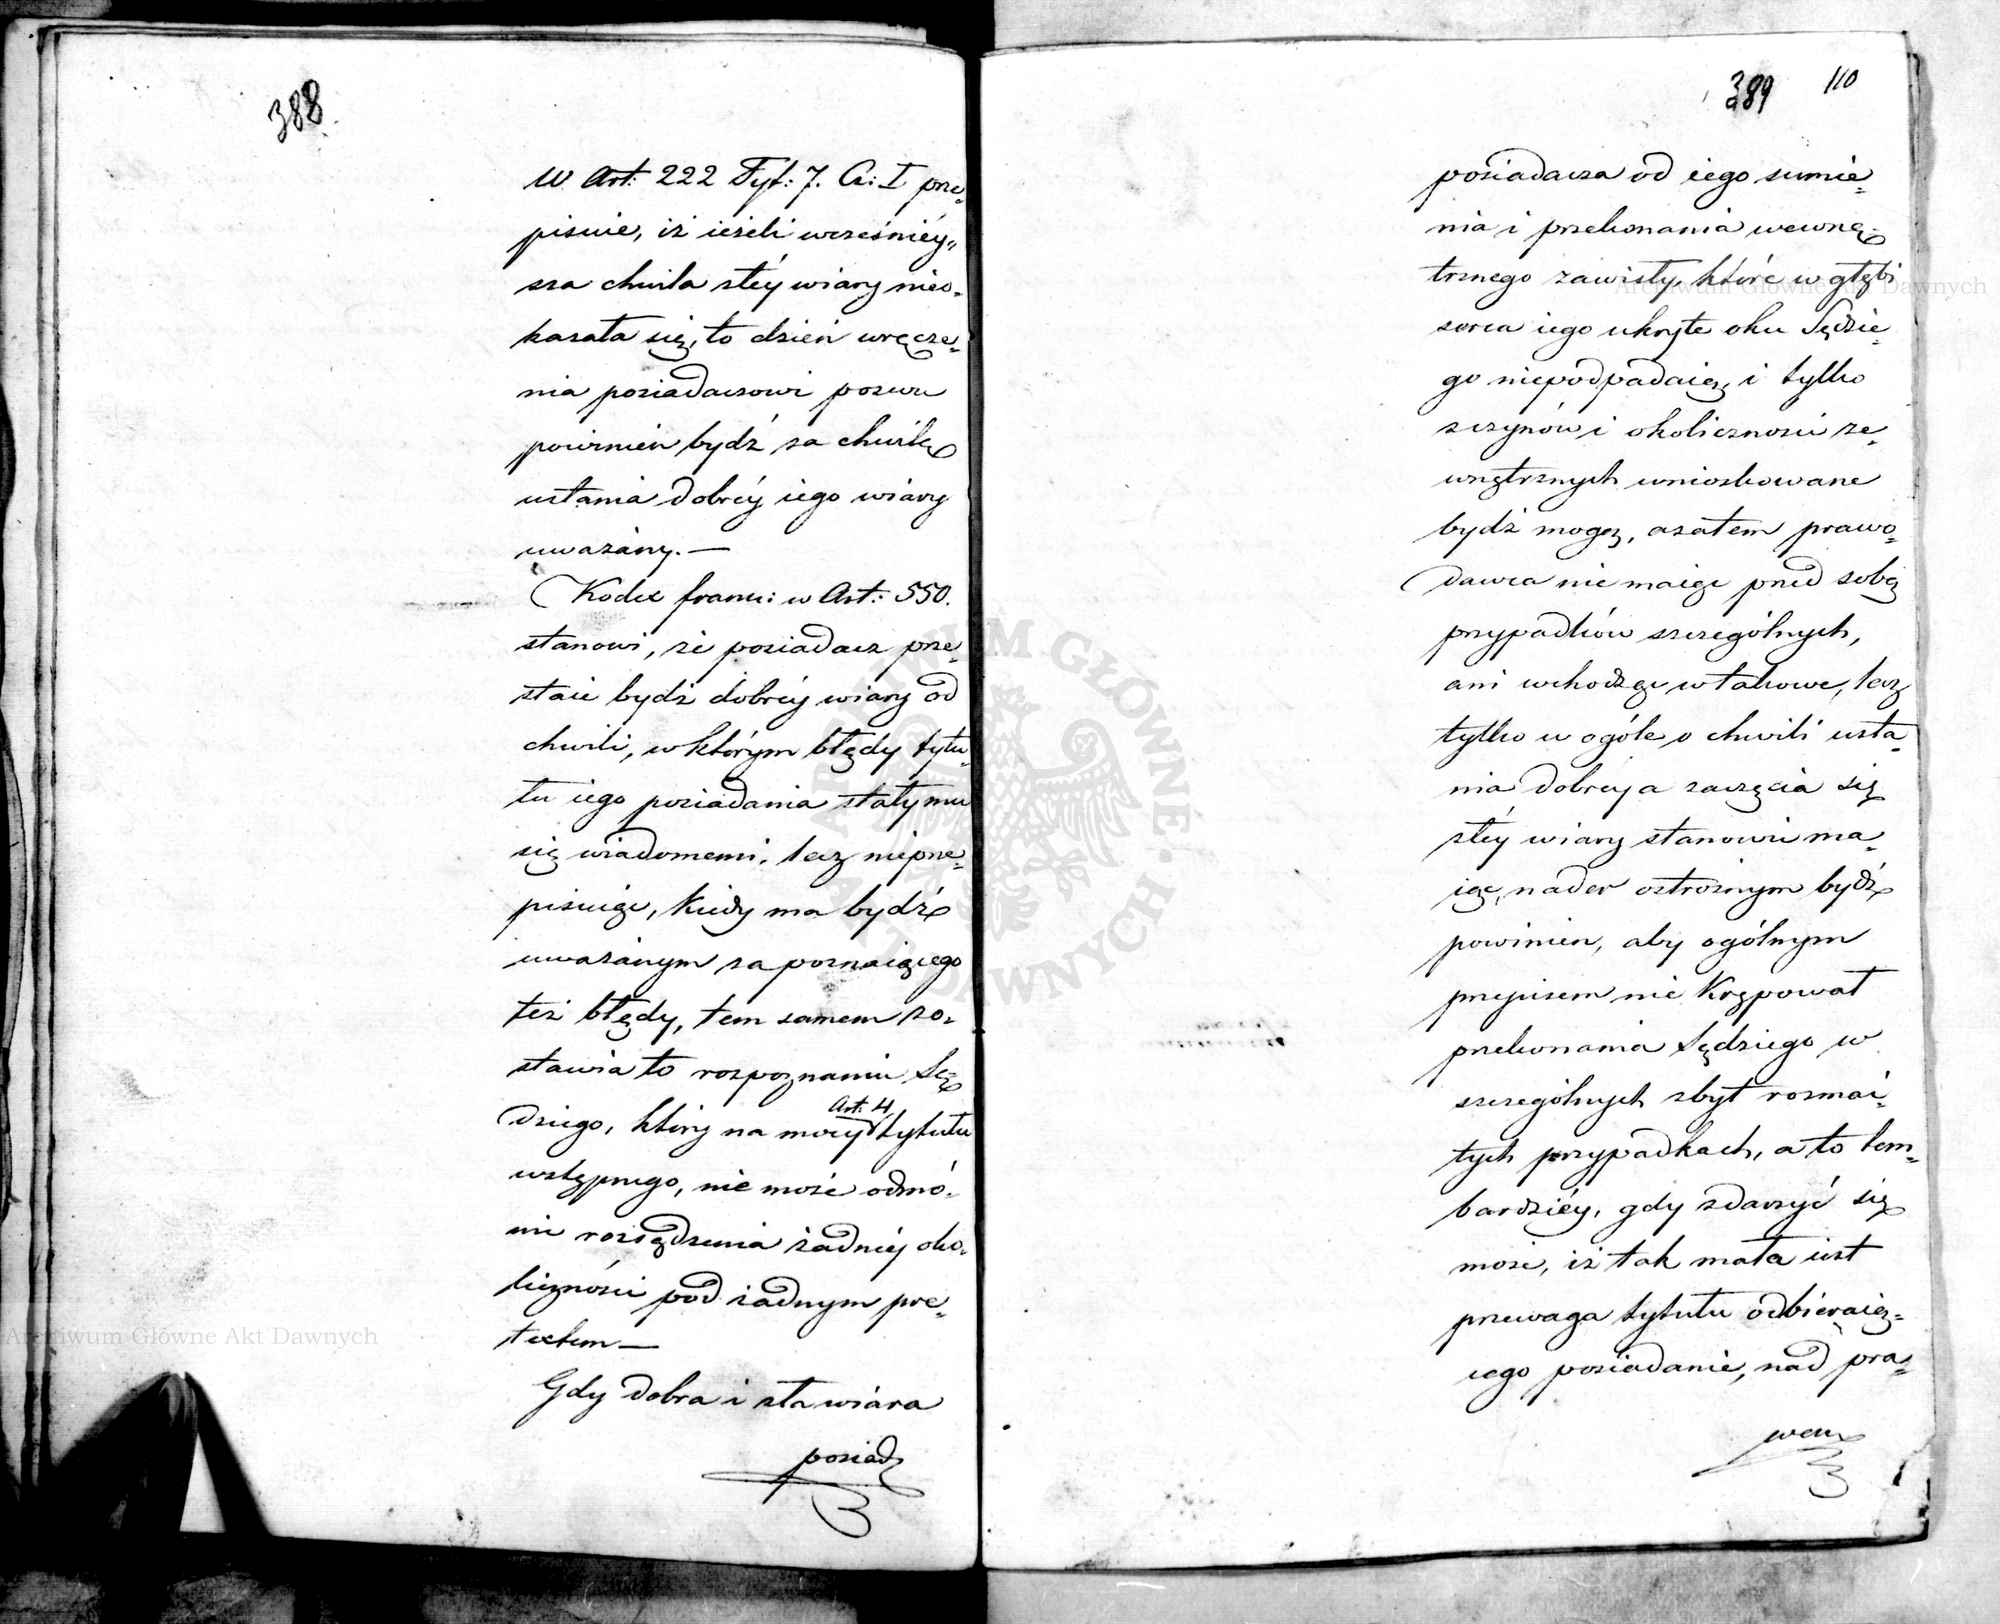 388
W Art: 222 Tyt: 7. Cz: I prze=
pisuie, iż ieżeli wcześniéy„
sza chwila złéy wiary nieo=
kazała się, to dzień wręcze=
nia posiadaczowi pozwu
powinien bydź za chwilę
ustania dobréy iego wiary
uważány.—
Kodex franc: w Art: 550.
stanowi, że posiadacz prze=
staie bydź dobréy wiary od
chwili, w którym błędy tytu=
łu iego posiadania stały mu
się wiadomemi, lecz nieprze=
pisuiąc, kiedy ma bydź
uważánym za poznaiącego
też błędy, tem samem zo=
stawia to rozpoznaniu Sę=
dziego, który na mocy Art: 4 tytułu
wstępnego, nie może odmó=
wić rozsądzenia żadnéy oko=
liczności pod żadnym pre=
textem —
Gdy dobra i zła wiára
posiad
389 110
posiadacza od iego sumie=
nia i przekonania wewnę=
trznego zawisły, które w głębi
serca iego ukryte oku Sędzie=
go niepodpadaią, i tylko
z czynów i okoliczności ze=
wnętrznych wnioskowane
bydź mogą, azatem prawo=
dawca nie maiąc przed sobą
przypadków szczególnych,
ani wchodząc w takowe, lecz
tylko w ogóle o chwili usta=
nia dobréy a zaczęcia się
złéy wiary stanowić ma=
iąc, nader ostrożnym bydź
powinien, aby ogólnym
przepisem nie krępował
przekonania Sędziego w
szczególnych zbyt rozmai=
tych przypadkach, a to tem=
bardziéy, gdy zdarzyć się
może, iż tak mała iest
przewaga tytułu odbieraią=
cego posiadanie, nad pra=
wem
Archiwum Główne Akt Dawnych
Archiwum Główne Akt Dawnych
ARCHIWUM GŁÓWNE AKT DAWNYCH